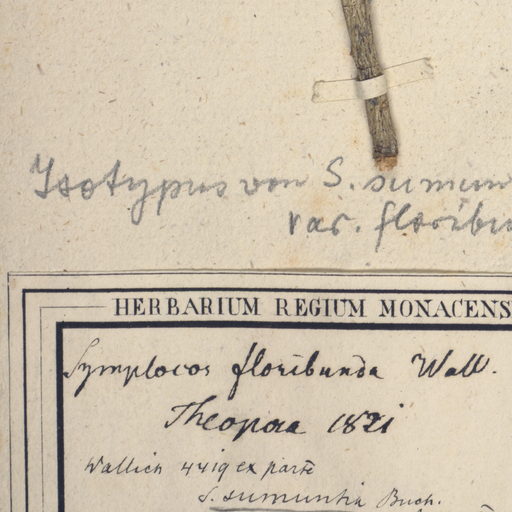 Isotypus von S. sumun
var. floribu
HERBARIUM REGIUM MONACENS
Symplocos floribunda Wall.
1821
Wallich 4419 ex parte
S. sumuntia Buch.